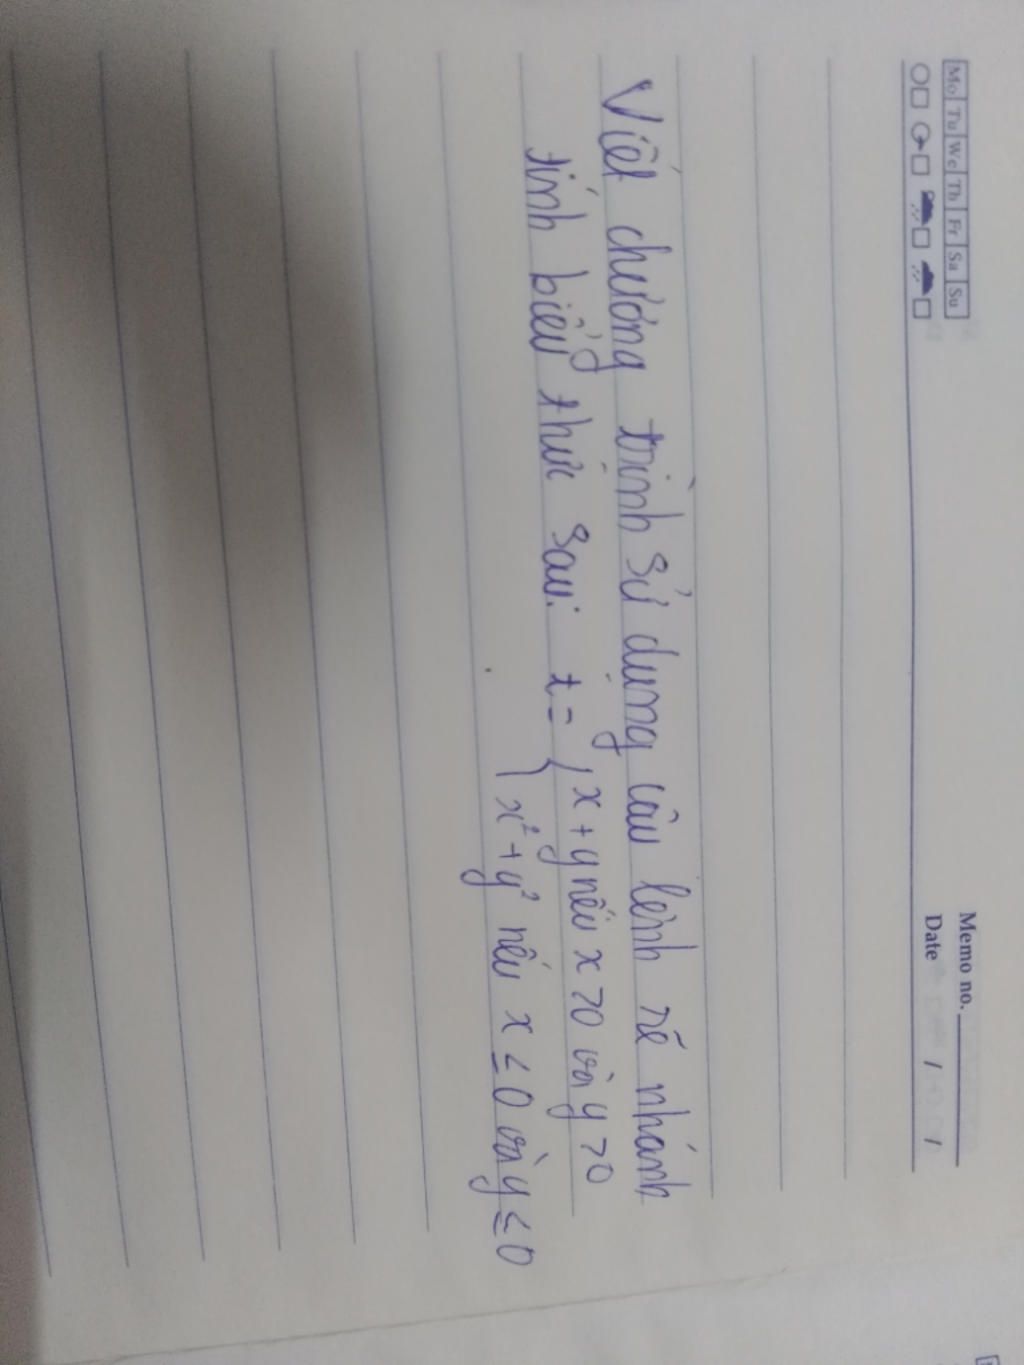 Mo Tu We Th Fr Sa Su
Memo no.
Date / /
Viết chương trình sử dụng câu lệnh rẽ nhánh
tính biểu thức sau: t = { x + y nếu x > 0 và y > 0
x² + y² nếu x ≤ 0 và y ≤ 0